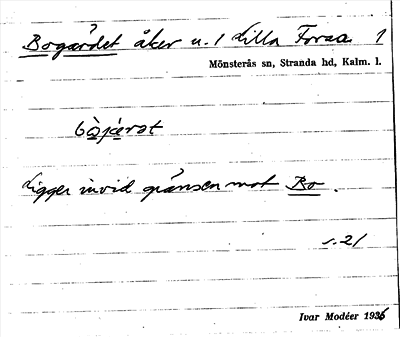 Bogärdet åker u. 1 Lilla Foraa 1
Mönsterås sn, Stranda hd, Kalm. l.
Ligger invid gränsen mot Bo.
s. 21
Ivar Modéer 1936